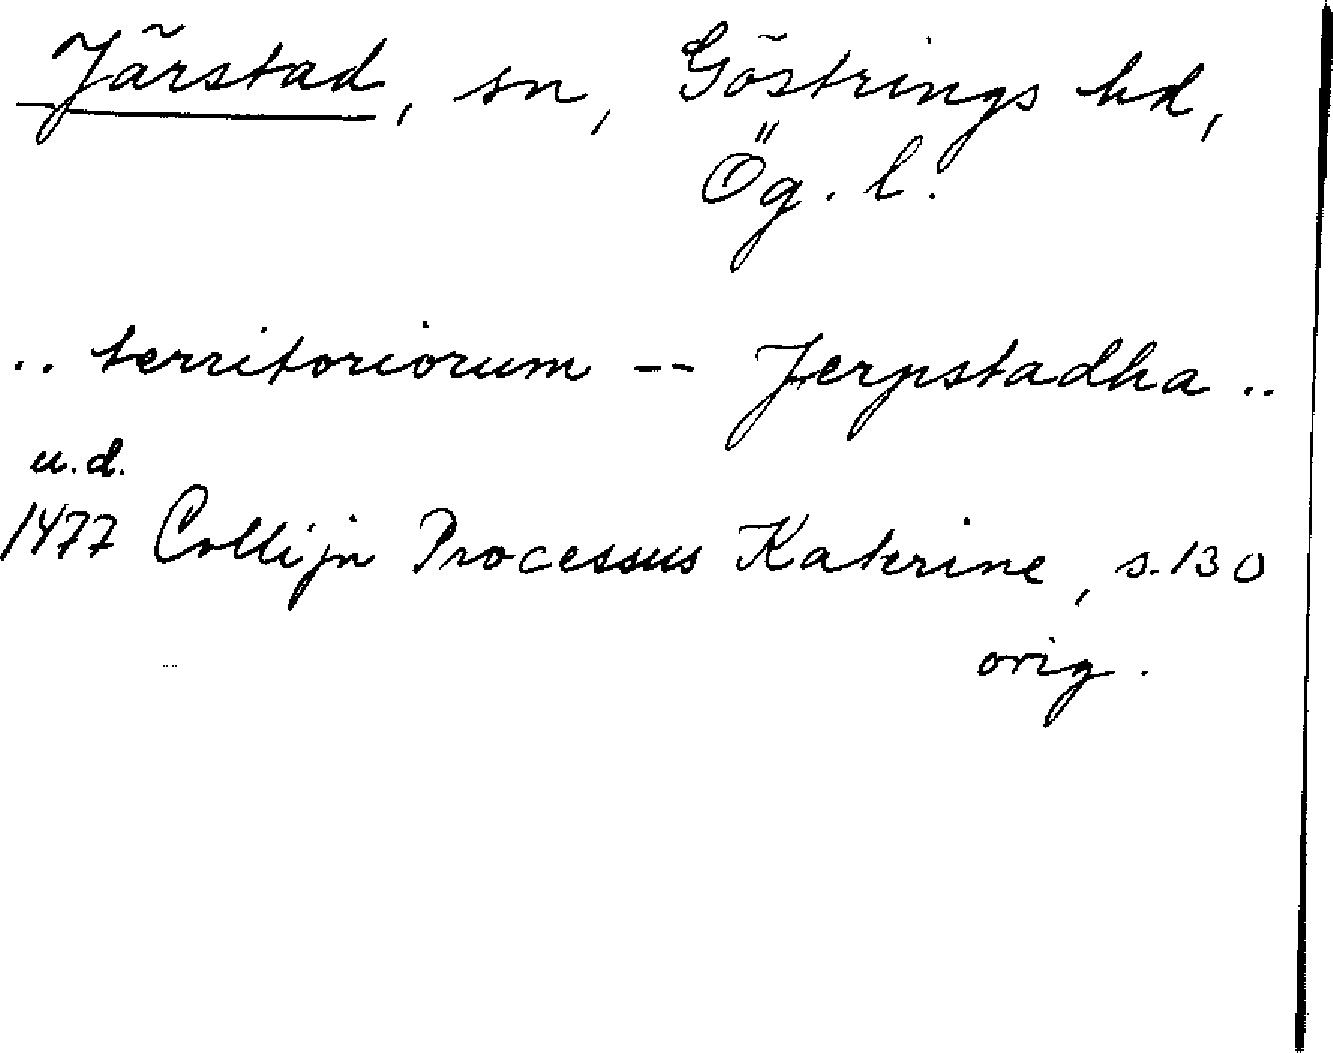 Järstad, sn, Göstrings hd,
Ög. l.
.. territoriorum -- Jerpstadha ..
u.d.
1477 Collijn Processus Katerine, s. 130
orig.